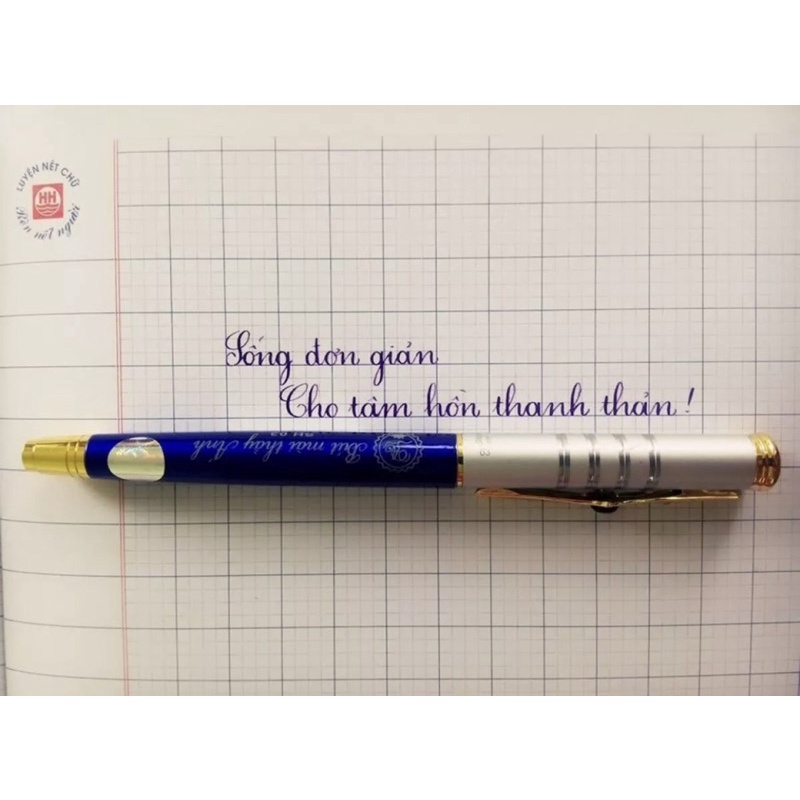 LUYỆN NÉT CHỮ
HH
Rèn nết người
Sống đơn giản
Cho tâm hồn thanh thản!
Bút mài thầy Ánh